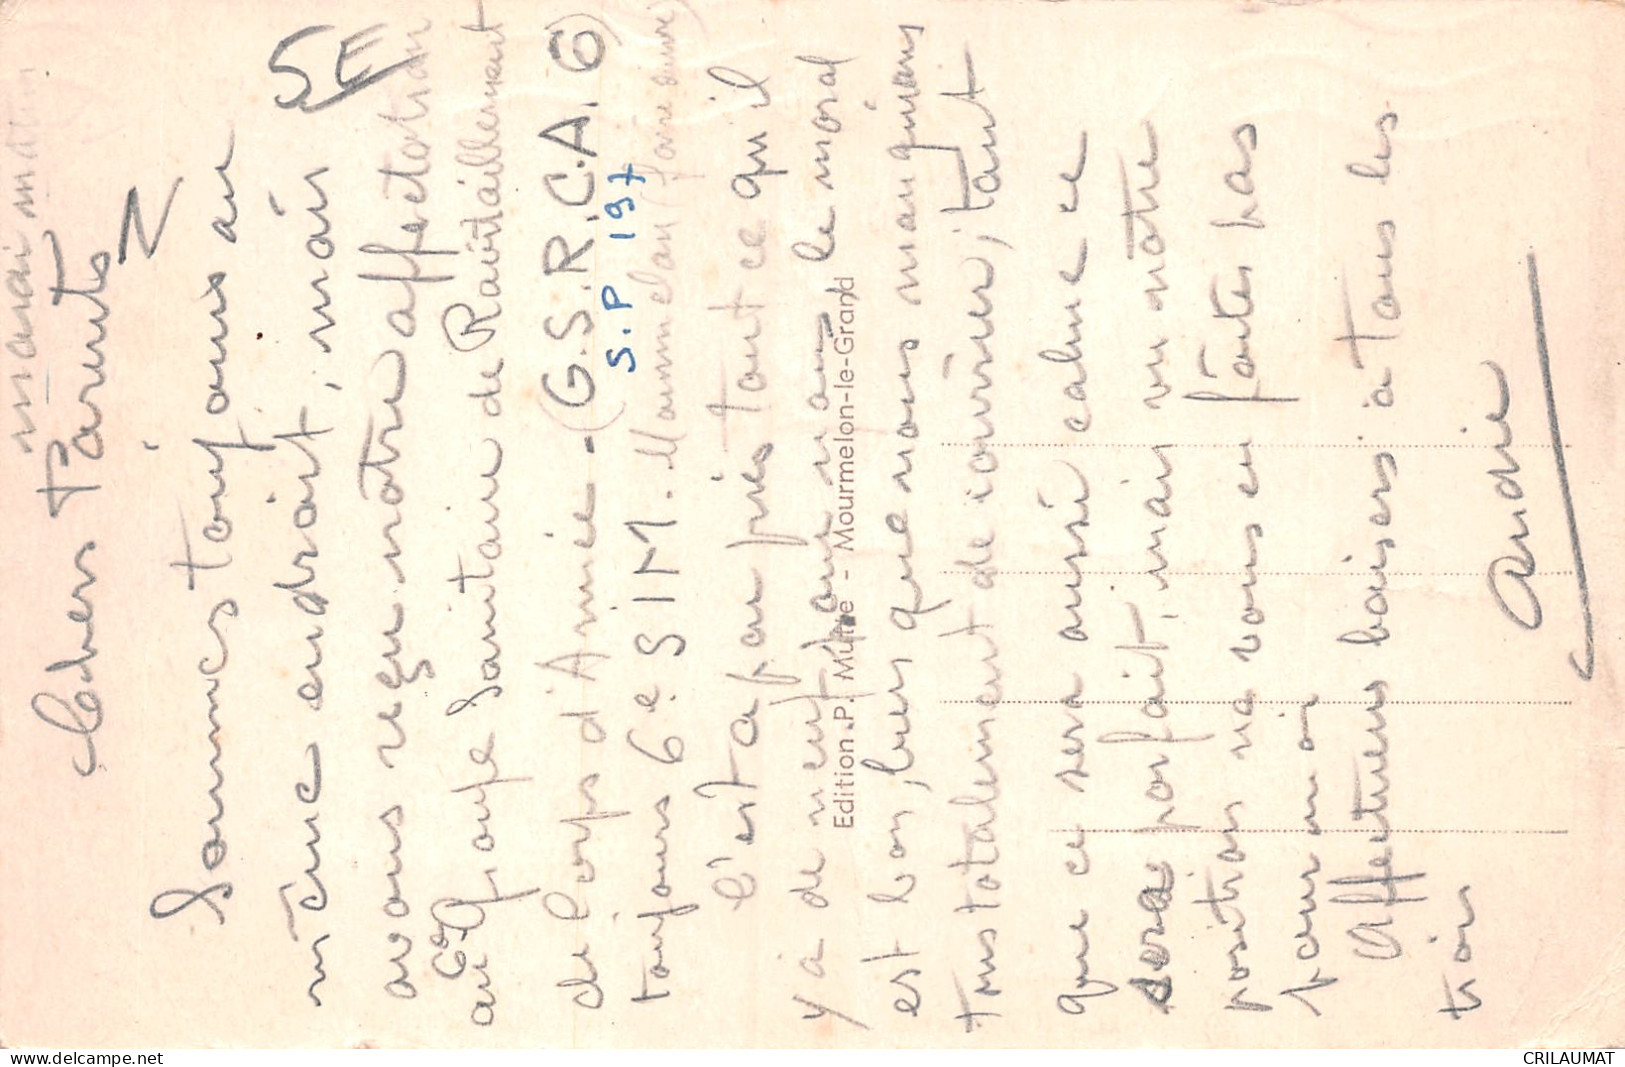 mardi matin
5E
Chers Parents
Sommes toujours au
même endroit, mais
avons reçu notre affectation
au 6e Groupe Sanitaire de Ravitaillement
de Corps d'Armée - (G.S.R.C.A. 6)
S.P 197
toujours 6e SIM. Mourmelon
C'est à peu près tout ce qu'il
y a de neuf pour nous le moral
est bon, bien que nous manquions
tous totalement de courrier, tant
que ce sera aussi calme ce
sera parfait, mais vu notre
position ne vous en faites pas
pour moi
Affectueux baisers à tous les
trois
André
Edition P. Mutte - Mourmelon-le-Grand
www.delcampe.net
CRILAUMAT